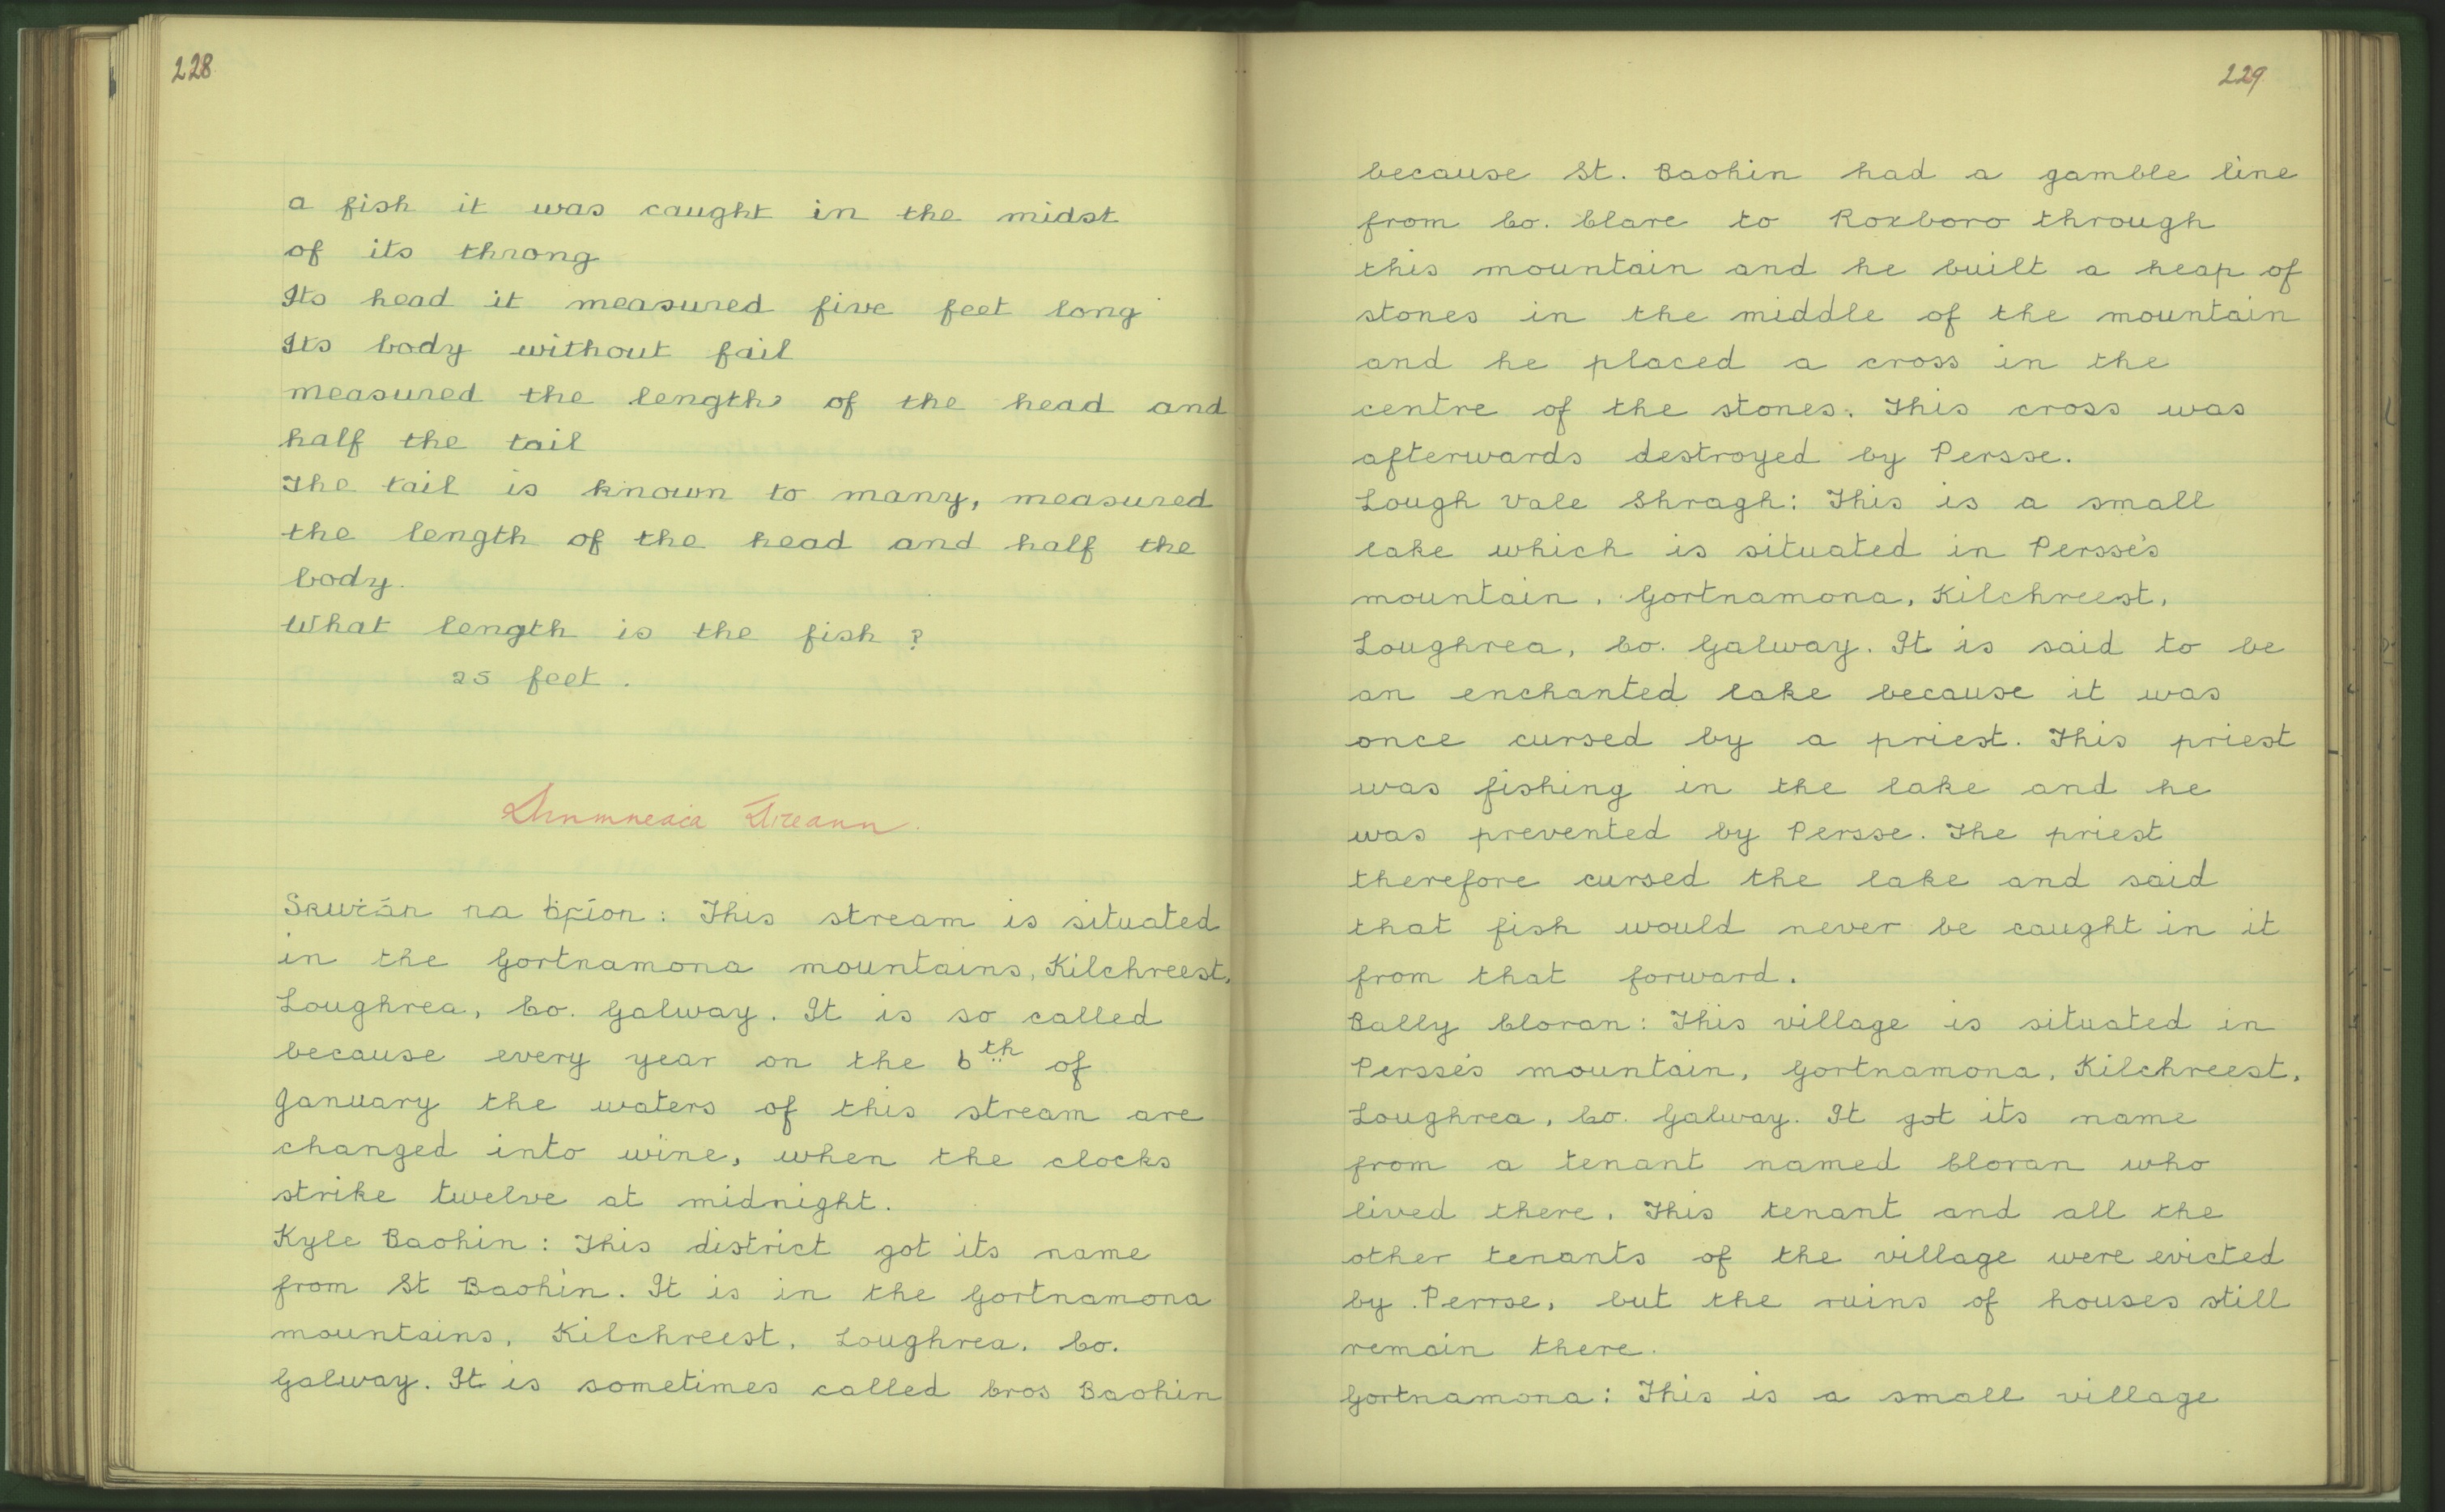 228
a fish it was caught in the midst
of its throng
Its head it measured five feet long
Its body without fail
measured the length of the head and
half the tail
The tail is known to many, measured
the length of the head and half the
body.
What length is the fish?
25 feet.
Sruṫán na ḃfíon: This stream is situated
in the Gortnamona mountains, Kilchreest,
Loughrea, Co. Galway. It is so called
because every year on the 6th of
January the waters of this stream are
changed into wine, when the clocks
strike twelve at midnight.
Kyle Baohin: This district got its name
from St Baohin. It is in the Gortnamona
mountains, Kilchreest, Loughrea, Co.
Galway. It is sometimes called Cros Baohin
229
because St. Baohin had a gamble line
from Co. Clare to Roxboro through
this mountain and he built a heap of
stones in the middle of the mountain
and he placed a cross in the
centre of the stones. This cross was
afterwards destroyed by Persse.
Lough Vale Shragh: This is a small
lake which is situated in Persse's
mountain, Gortnamona, Kilchreest,
Loughrea, Co. Galway. It is said to be
an enchanted lake because it was
once cursed by a priest. This priest
was fishing in the lake and he
was prevented by Persse. The priest
therefore cursed the lake and said
that fish would never be caught in it
from that forward.
Bally Cloran: This village is situated in
Persse's mountain, Gortnamona, Kilchreest,
Loughrea, Co. Galway. It got its name
from a tenant named Cloran who
lived there. This tenant and all the
other tenants of the village were evicted
by Perrse, but the ruins of houses still
remain there.
Gortnamona: This is a small village